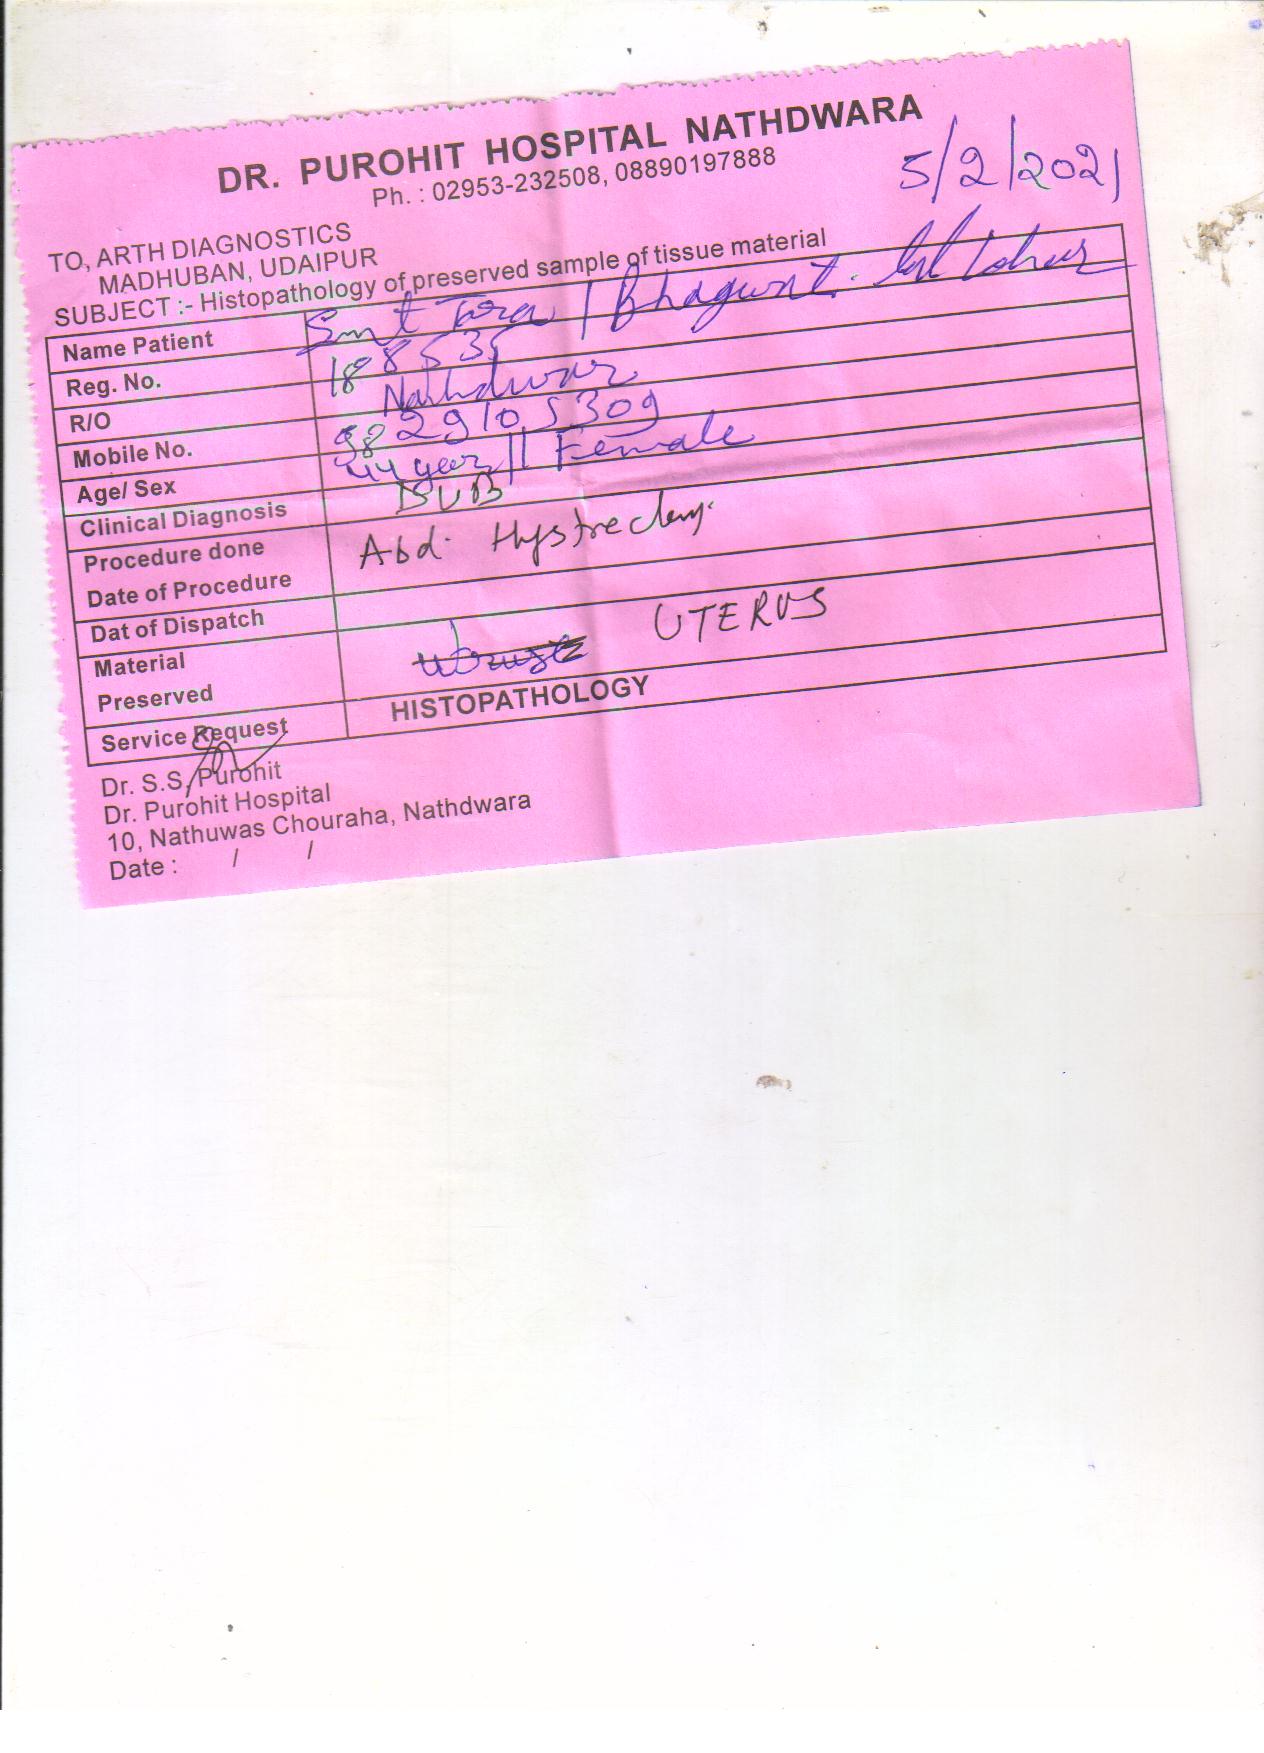 DR. PUROHIT HOSPITAL NATHDWARA
Ph. : 02953-232508, 08890197888
5/2/2021
TO, ARTH DIAGNOSTICS
MADHUBAN, UDAIPUR
SUBJECT :- Histopathology of preserved sample of tissue material
Name Patient Smt Tara / Bhagwat Lal Lohar
Reg. No. 188535
R/O Nathdwara
Mobile No. 9829105309
Age/ Sex 44 year // Female
Clinical Diagnosis DUB
Procedure done Abd. Hystrectomy
Date of Procedure
Dat of Dispatch
Material UTERUS
Preserved
Service Request HISTOPATHOLOGY
Dr. S.S. Purohit
Dr. Purohit Hospital
10, Nathuwas Chouraha, Nathdwara
Date : / /